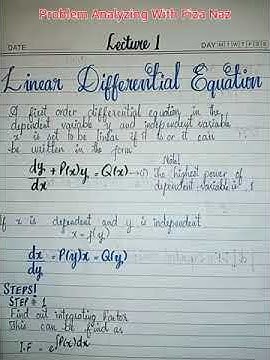 Problem Analyzing With Fiza Naz
DATE Lecture 1 DAY M T W T F S S
Linear Differential Equation
A first order differential equation in the
dependent variable y and independent variable
x is set to be linear if it is or it can
be written in the form
dy/dx + P(x)y = Q(x) → (1)
Note!
The highest power of
dependent variable is 1
If x is dependent and y is independent
x = f(y)
dx/dy = P(y)x = Q(y)
STEPS!
STEP # 1
Find out integrating factor
This can be find as
I.F = e^∫P(x)dx